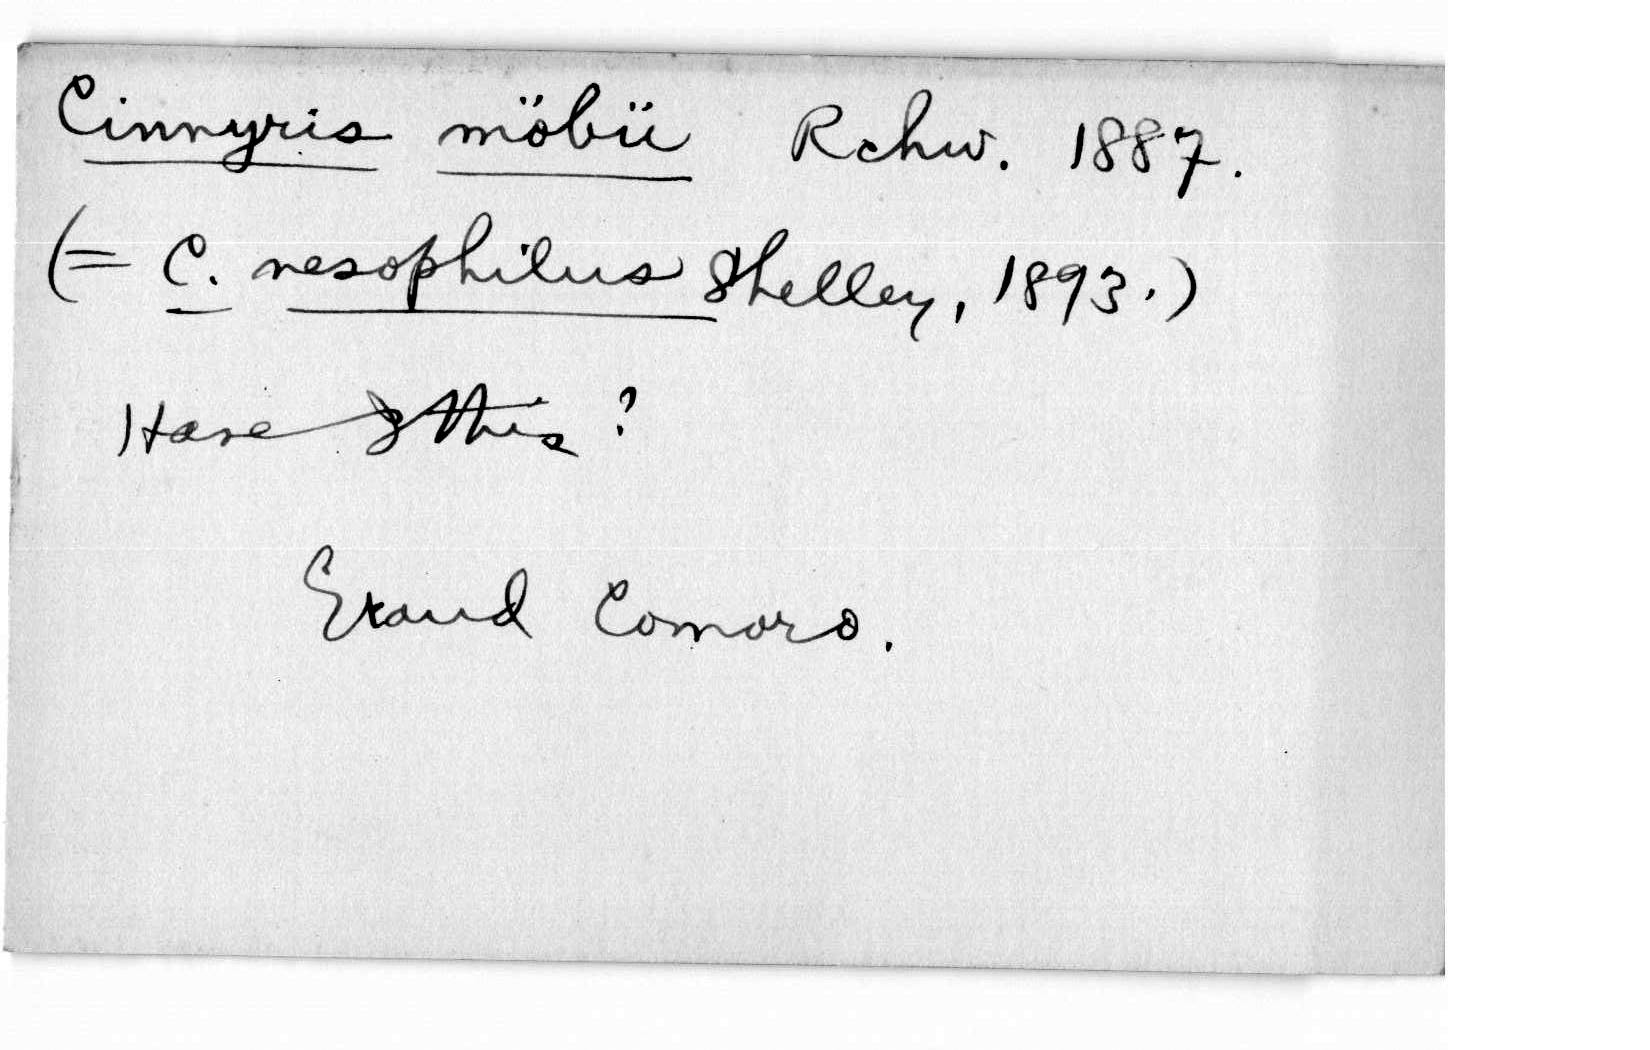 Cinnyris möbii Rchw. 1887.
(= C. nesophilus Shelley, 1893.)
Have I this?
Grand Comoro.